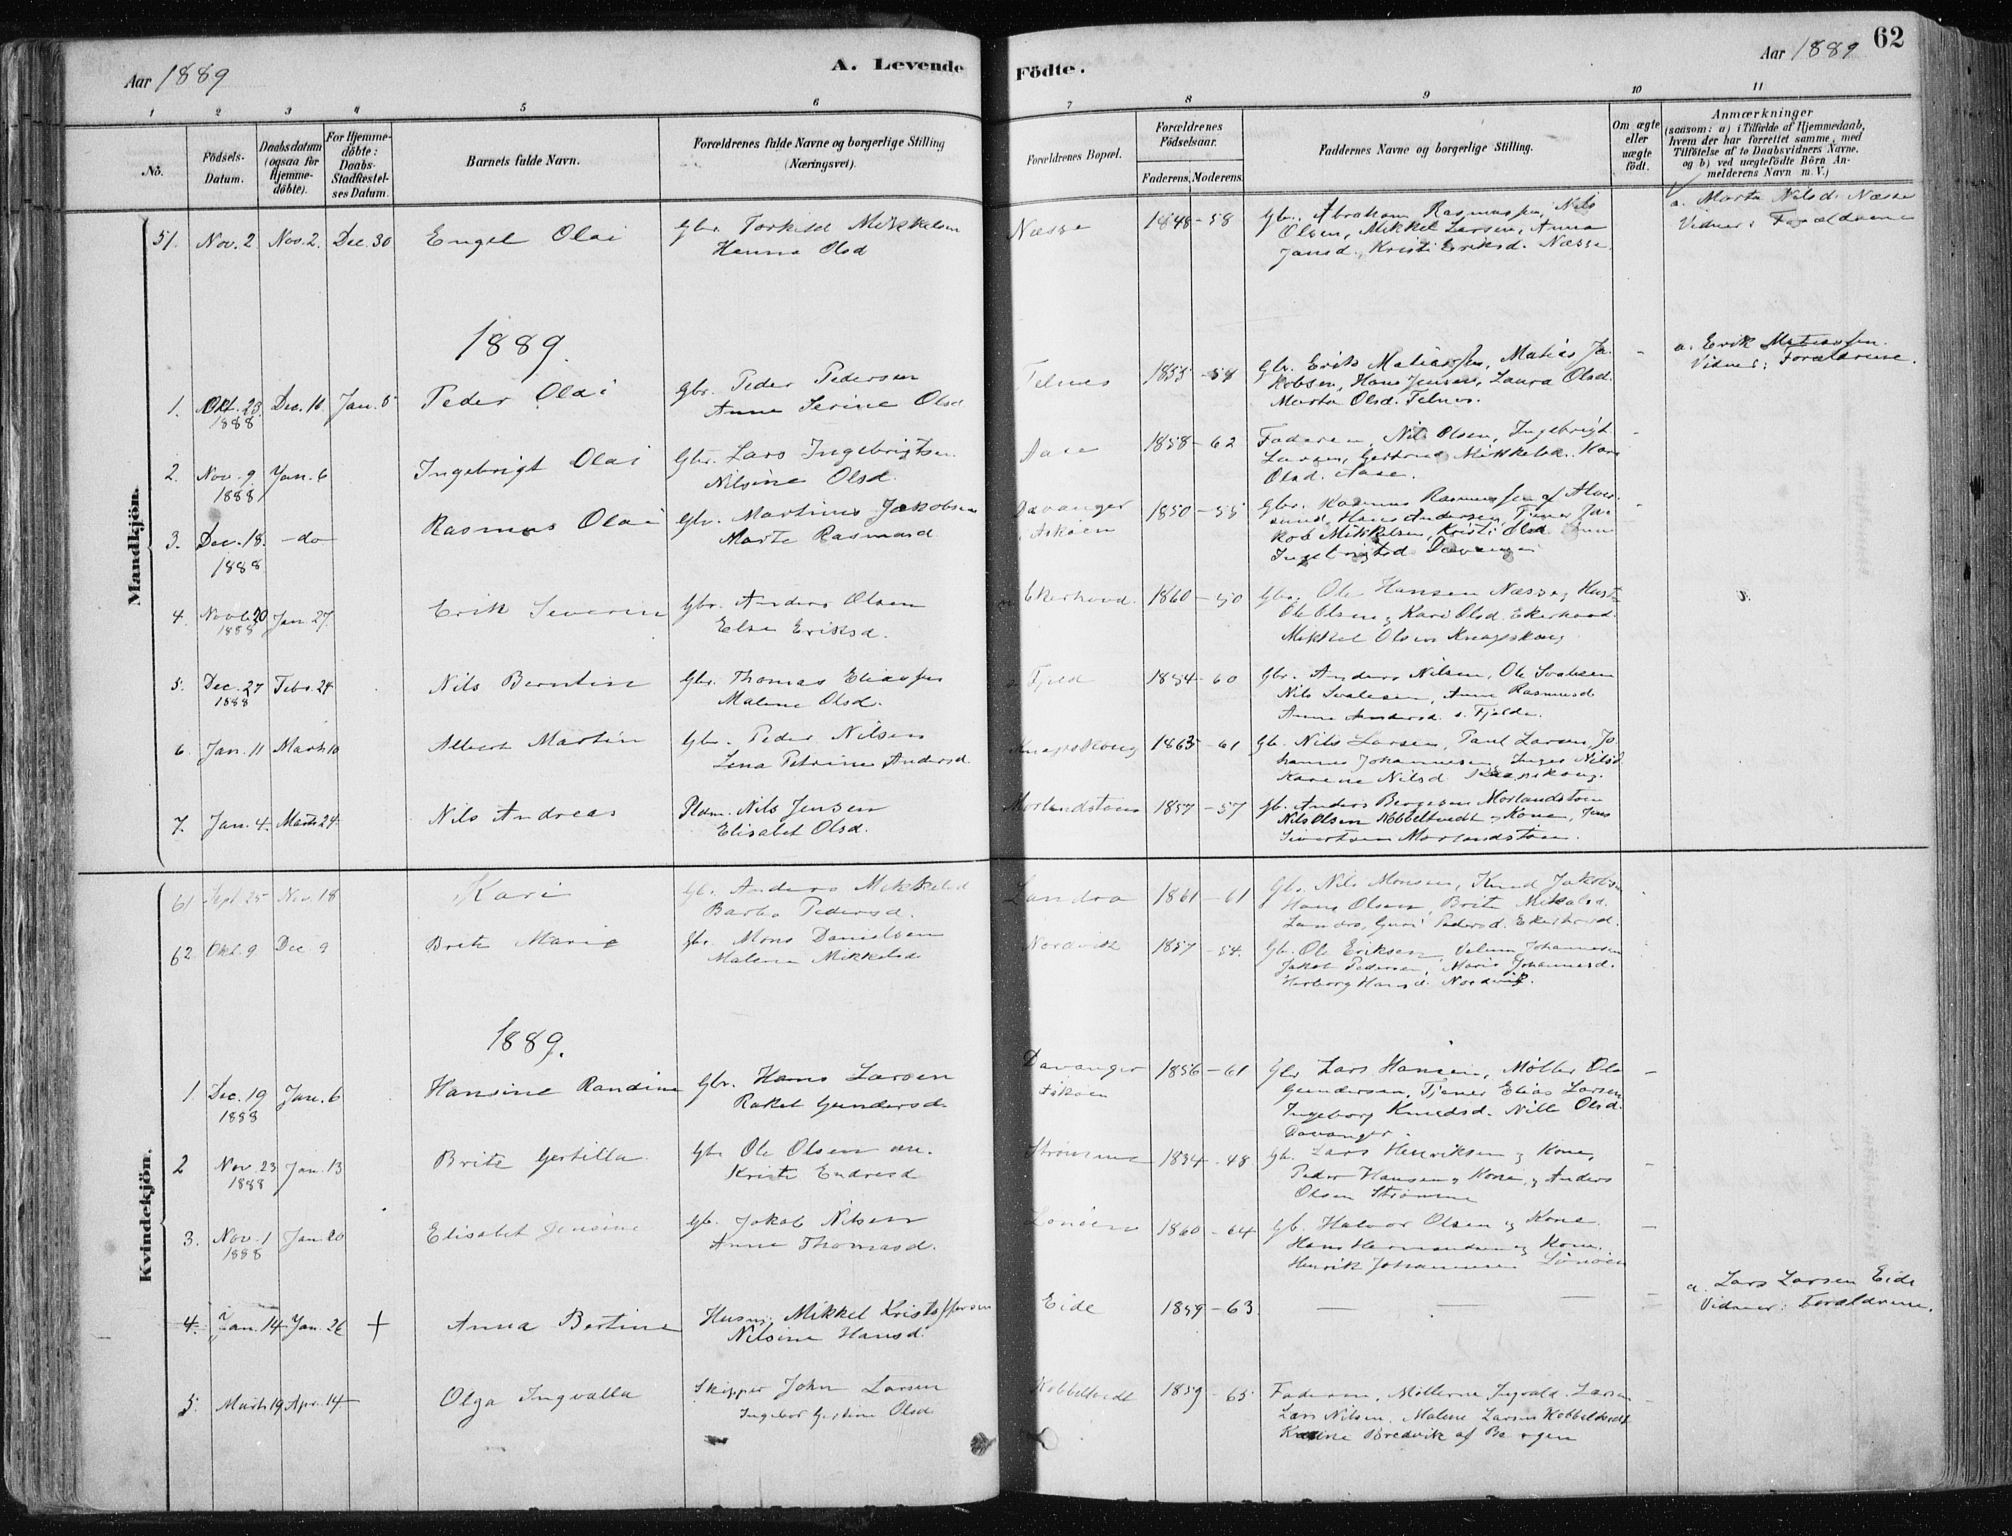 62
Aar 1889
A. Levende Födte.
Aar 1889
1 2 3 4 5 6 7 8 9 10 11
No.
Födsels-Datum.
Daabsdatum (ogsaa for Hjemme-döbte).
For Hjemme-döbte: Daabs-Stadfestel-ses Datum.
Barnets fulde Navn.
Forældrenes fulde Navne og borgerlige Stilling (Næringsvei).
Forældrenes Bopæl.
Forældrenes Födselsaar.
Faderens. Moderens.
Faddernes Navne og borgerlige Stilling.
Om ægte eller uægte födt.
Anmærkninger
(saasom: a) i Tilfælde af Hjemmedaab, hvem der har forrettet samme, med Tilföielse af to Daabsvidners Navne, og b) ved uægtefödte Börn An-melderens Navn m. V.)
Mandkjön.
51. Nov. 2 Nov. 2. Dec. 30 Engel Olai Gbr. Torkild Mikkelsen
Hanna Olsd
Næsse 1848-58 Gbr. Abraham Rasmussen, Nils
Olsen, Mikkel Larsen, Anna
Jansd., Kristi Eriksd. Næsse.
a. Marta Nilsd. Næsse
Vidner: Forældrene
1889.
1. Okt. 23 1888 Dec. 16 Jan. 5 Peder Olai Gbr. Peder Pedersen
Anne Serine Olsd
Telnes 1855-54 Gbr. Erik Matiassen, Matias Ja-
kobsen, Hans Jensen, Laura Olsd.
Marta Olsd. Telnes.
a. Erik Matiassen.
Vidner: Forældrene.
2. Nov. 9 1888 Jan. 6 Ingebrigt Olai Gbr. Lars Ingebrigtsen
Nilsine Olsd.
Aase 1858-62 Faderen, Nils Olsen, Ingebrigt
Larsen, Gertrud Mikkelsd. Kari
Olsd. Aase.
3. Dec. 18. 1888 -do- Rasmus Olai Gbr. Martinus Jakobsen
Marte Rasmusd
Davanger
Askøen 1850-55 Gbr. Rasmus Rasmussen af Alver-
sund, Hans Andersen, Tjener Ja-
kob Mikkelsen, Kristi Olsd
Ingebrigtsd Davanger
4. Novb. 20 1888 Jan. 27. Erik Severin Gbr. Anders Olsen
Else Eriksd.
Ekerhovd. 1860-50 Gbr. Ole Hansen Næsse
Ole Olsen og Kari Olsd. Ekerhovd.
Mikkel Olsen Knapskoug
5. Dec. 27 1888 Febr. 24 Nils Berntin Gbr. Thomas Eliassen
Malene Olsd.
Fjeld 1854-60 Gbr. Anders Nilsen, Ole
Nils Anne Rasmusd
Anne Andersd. Fjelde.
6. Jan. 11 Marts 10 Albert Martin Gbr. Peder Nilsen
Lena Petrine Andersd
Knapskoug 1863-61 Gb. Nils Larsen, Paul Larsen, Jo-
hannes Johannesen, Inger Nilsd
Karene Nilsd Knapskoug.
7. Jan. 4. Marts 24 Nils Andreas Pldm. Nils Jensen
Elisabet Olsd.
Morlandstøen 1857-57 Gb. Anders Børgesen Morlandstøen
Nils Olsen Kobbeltvedt og Kone, Jens
Sivertsen Morlandstøen.
Kvindekjön.
61 Sept. 25 Nov. 18 Kari Gb. Anders Mikkelsd
Barbo Pedersd.
Landro 1861-61 Gb. Nils Monsen, Knud Jakobsen
Hans Olsen, Brite Mikkelsd.
Landro, Guri Pedersd. Ekerhovd.
62 Okt. 9 Dec 9 Brite Marie Gbr. Mons Danielsen
Malena Mikkelsd
Nordvik 1857-54. Gb. Ole Eriksen, Johannesen
Jakob Pedersen, Marie Johannesd.
Herborg Hansd. Nordvik.
1889.
1. Dec. 19 1888 Jan. 6 Hansine Randine Gbr. Hans Larsen
Rakel Gundersd.
Davanger
Askøen 1856-61 Gbr Lars Hansen, Møller Ole
Gundersen, Tjener Elias Larsen
Ingeborg Knudsd. Nille Olsd.
Davanger.
2 Nov. 23 1888 Jan. 13 Brite Gertilla Gbr Ole Olsen
Kristi Endresd
Strømme 1834-48 Gb. Lars Henriksen og Kone,
Peder Hansen og Kone og Anders
Olsen Strømme
3. Nov. 1 1888 Jan. 20 Elisabet Jensine Gb. Jakob Nilsen
Anne Thomasd.
Lonøen 1860-64 Gb. Halvor Olsen og Kone
Hans Hermandsen og Kone,
Henrik Johannesen Lønøen
4. Jan. 14 Jan. 26 + Anna Bertine Husm. Mikkel Kristoffersen
Nilsine Hansd.
Eide 1859-63.
a. Lars Larsen Eide
Vidner: Forældrene.
5. Marts 19 Apr. 14 Olga Ingvalla Skipper John Larsen
Ingebor Gertine Olsd
Kobbeltvedt 1859-65 Faderen, Møllerne Ingvald Larsen
Lars Nilsen, Malene Larsen Kobbeltvedt
Bredvik af Bergen